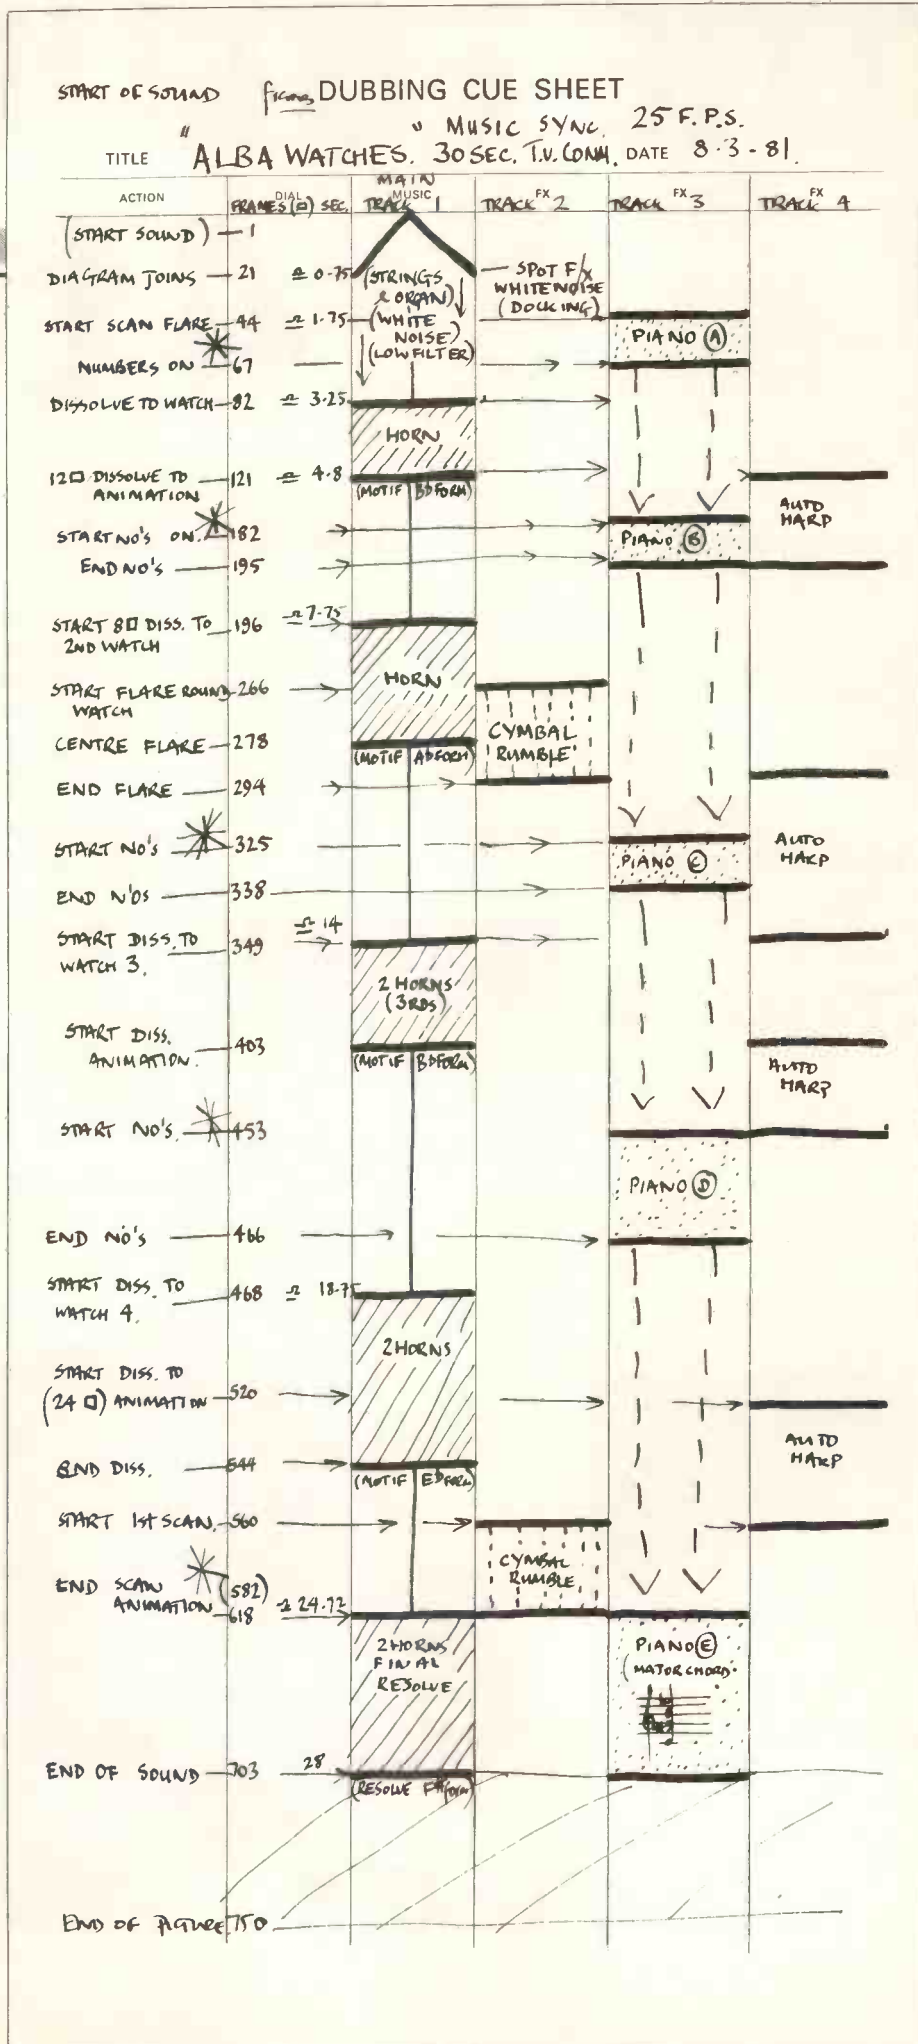 START OF SOUND
DUBBING CUE SHEET
" " MUSIC SYNC. 25 F.P.S.
TITLE ALBA WATCHES. 30 SEC. T.V. COMM. DATE 8·3-81.
ACTION FRAMES DIAL (□) SEC. MAIN MUSIC TRACK 1 TRACK FX 2 TRACK FX 3 TRACK FX 4
(START SOUND) — 1
DIAGRAM JOINS — 21 ≏ 0.75 (STRINGS & ORGAN) — SPOT F/X WHITE NOISE (DOCKING)
START SCAN FLARE — 44 ≏ 1.75 (WHITE NOISE) (LOW FILTER) PIANO Ⓐ
NUMBERS ON — 67
DISSOLVE TO WATCH — 82 ≏ 3.25
HORN
12□ DISSOLVE TO ANIMATION — 121 ≏ 4.8 (MOTIF BD FORM)
AUTO HARP
START NO'S ON. 182
PIANO Ⓑ
END NO'S — 195
START 8□ DISS. TO 2ND WATCH — 196 ≏ 7.75
HORN
START FLARE ROUND WATCH — 266
CYMBAL RUMBLE
CENTRE FLARE — 278 (MOTIF AD FORM)
END FLARE — 294
START NO'S 325
AUTO HARP
PIANO Ⓒ
END N'OS — 338
START DISS. TO WATCH 3. — 349 ≏ 14
2 HORNS (3RDS)
START DISS. ANIMATION. — 403 (MOTIF BD FORM)
AUTO HARP
START NO'S. 453
PIANO Ⓓ
END NO'S — 466
START DISS. TO WATCH 4. — 468 ≏ 18.75
2 HORNS
START DISS. TO (24 □) ANIMATION — 520
AUTO HARP
END DISS. — 544 (MOTIF ED FORM)
START 1ST SCAN. — 560
CYMBAL RUMBLE
END SCAN ANIMATION (582) 618 ≏ 24.72
2 HORNS FINAL RESOLVE
PIANO Ⓔ (MAJOR CHORD)
END OF SOUND — 703 28 (RESOLVE
END OF PICTURE 750